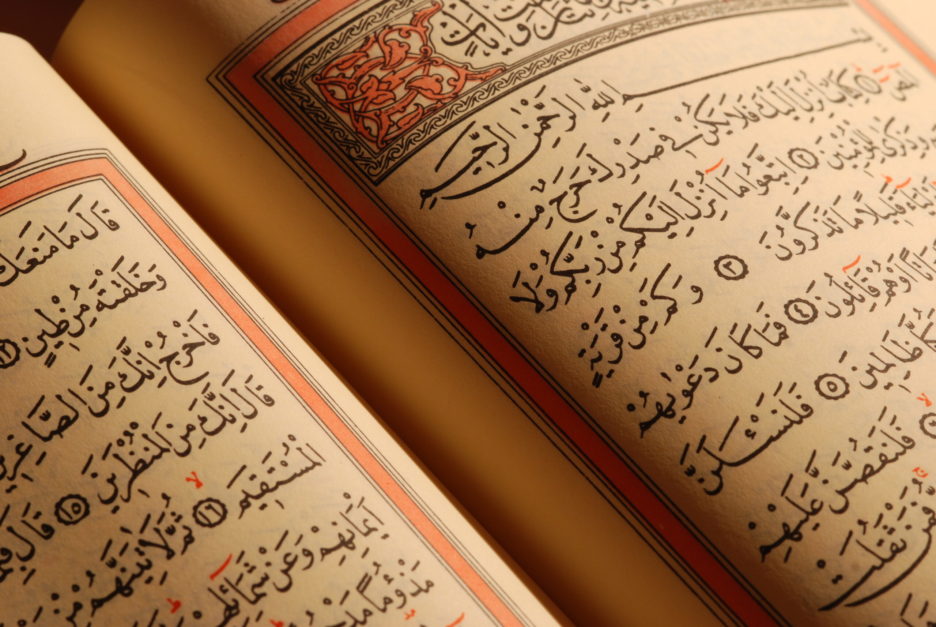 اللهِ الرَّحْمٰنِ الرَّحِيمِ
الٓمٓصٓ ١ كِتَابٌ اُنْزِلَ اِلَيْكَ فَلَا يَكُنْ فِى صَدْرِكَ حَرَجٌ مِنْهُ
وَذِكْرٰى لِلْمُؤْمِنِينَ ٢ اِتَّبِعُوا مَٓا اُنْزِلَ اِلَيْكُمْ مِنْ رَبِّكُمْ وَلَا
قَلِيلًا مَا تَذَكَّرُونَ ٣ وَكَمْ مِنْ قَرْيَةٍ
اَوْهُمْ قَٓائِلُونَ ٤ فَمَا كَانَ دَعْوٰيهُمْ
ظَالِمِينَ ٥ فَلَنَسْـَٔلَنَّ
فَلَنَقُصَّنَّ عَلَيْهِمْ
فَمَنْ ثَقُلَتْ
قَالَ مَا مَنَعَكَ
وَخَلَقْتَهُ مِنْ طِينٍ ١٢
فَاخْرُجْ اِنَّكَ مِنَ الصَّاغِرِينَ
قَالَ اِنَّكَ مِنَ الْمُنْظَرِينَ ١٥ قَالَ
الْمُسْتَقِيمَ ١٦ ثُمَّ لَاٰتِيَنَّهُمْ مِنْ
اَيْمَانِهِمْ وَعَنْ شَمَٓائِلِهِمْ
مَذْؤُمًا